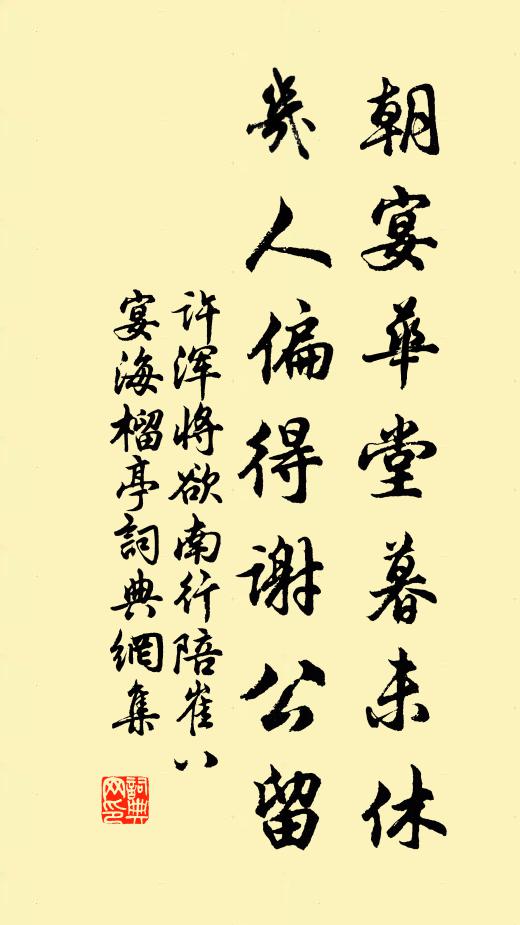 朝宴華堂暮未休
幾人偏得謝公留
许浑将欲南行陪崔八
宴海榴亭詞典網集
詞典
网印